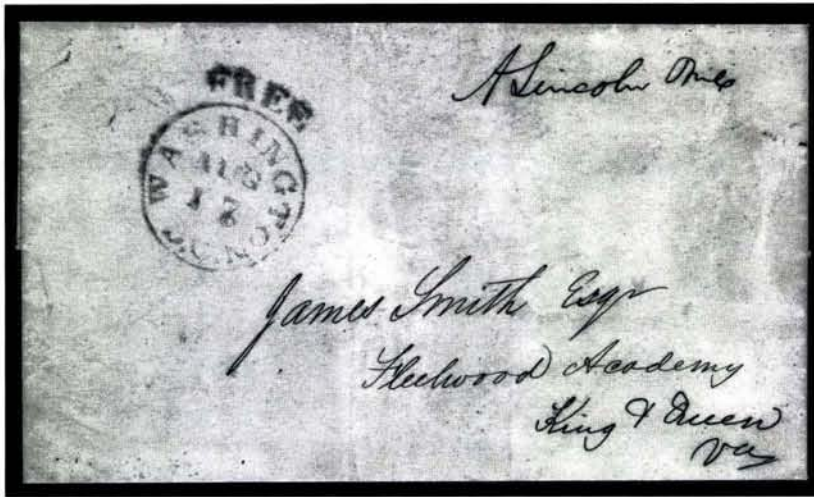 FREE
WASHINGTON D.C.
AUG
A Lincoln
James Smith Esqr
Fleetwood Academy
King & Queen
Va